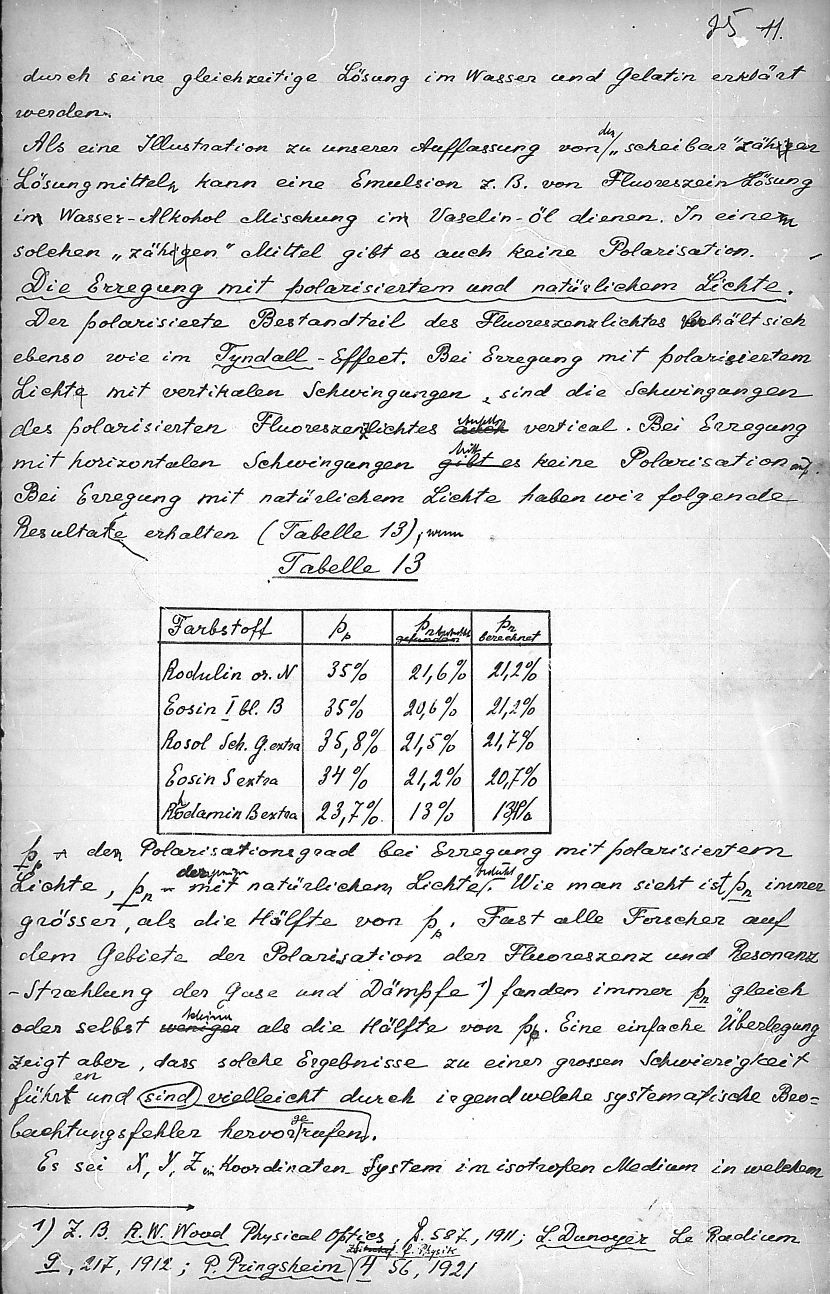 25 11.
durch seine gleichzeitige Lösung im Wasser und Gelatin erklärt
werden.
Als eine Illustration zu unserer Auffassung von der „scheibar" zähen
Lösungmitteln kann eine Emulsion z. B. von Fluoreszein Lösung
in Wasser-Alkohol Mischung in Vaselin-Öl dienen. In einem
solchen „zähen" Mittel gibt es auch keine Polarisation.
Die Erregung mit polarisiertem und natürlichem Lichte.
Der polarisierte Bestandteil des Fluoreszenzlichtes verhält sich
ebenso wie im Tyndall-Effect. Bei Erregung mit polarisiertem
Licht mit vertikalen Schwingungen, sind die Schwingungen
des polarisierten Fluoreszenzlichtes auch vertical. Bei Erregung
mit horizontalen Schwingungen tritt keine Polarisation auf.
Bei Erregung mit natürlichem Lichte haben wir folgende
Resultate erhalten (Tabelle 13),
Tabelle 13
Farbstoff pp pn gefunden pn berechnet
Rodulin or. N 35% 21,6% 21,2%
Eosin I bl. B 35% 20,6% 21,2%
Rosol Sch. G. extra 35,8% 21,5% 21,7%
Eosin S extra 34% 21,2% 20,7%
Rodamin B extra 23,7% 13%
pp den Polarisationsgrad bei Erregung mit polarisiertem
Lichte, pn – mit natürlichem Lichte. Wie man sieht ist pn immer
grösser, als die Hälfte von pp. Fast alle Forscher auf
dem Gebiete der Polarisation der Fluoreszenz und Resonanz
-Strahlung der Gase und Dämpfe 1) fanden immer pn gleich
oder selbst kleiner als die Hälfte von pp. Eine einfache Überlegung
zeigt aber, dass solche Ergebnisse zu einer grossen Schwierigkeit
führen und sind vielleicht durch irgendwelche systematische Beo-
bachtungsfehler hervorgerufen.
Es sei X, Y, Z ein Koordinaten System im isotropen Medium in welchem
1) Z. B. R. W. Wood Physical Optics, S. 587, 1911; L. Dunoyer Le Radium
9, 217, 1912; P. Pringsheim Zeitschr. f. Physik 4 56, 1921